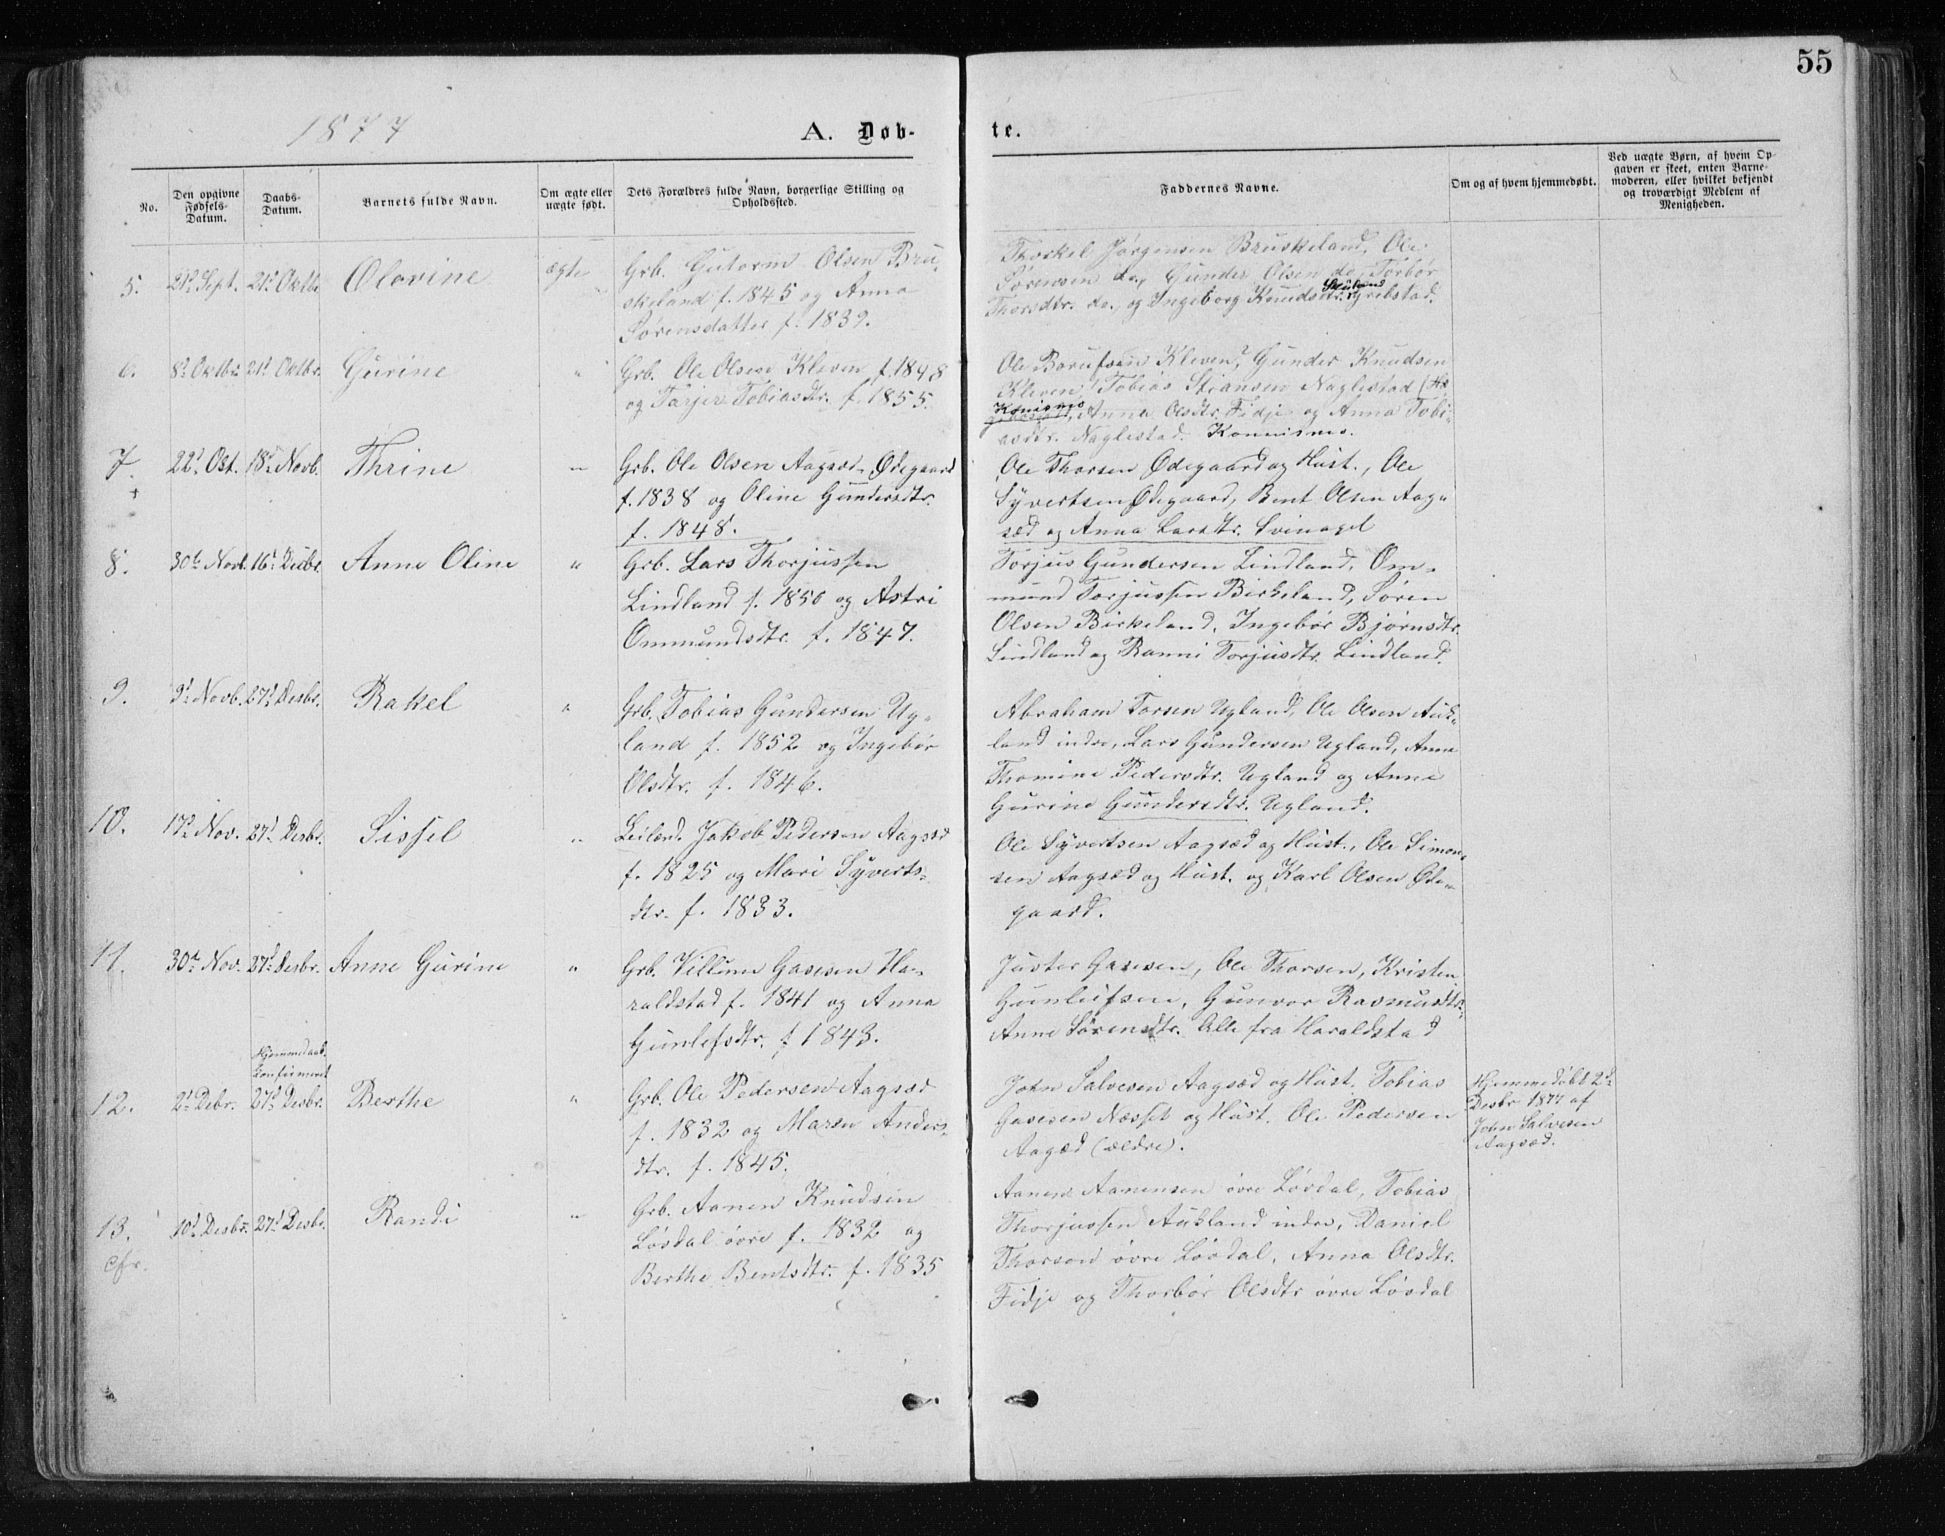 55
1877
A. Døb-
te.
No.
Den opgivne Fødsels-Datum.
Daabs-Datum.
Barnets fulde Navn.
Om ægte eller uægte født.
Dets Forældres fulde Navn, borgerlige Stilling og Opholdssted.
Faddernes Navne.
Om og af hvem hjemmedøbt.
Ved uægte Børn, af hvem Opgaven er skeet, enten Barnemoderen, eller hvilket bekjendt og troværdigt Medlem af Menigheden.
5. 21d. Sept. 21d. Oktbr. Olovine ægte
Grb. Gutorm Olsen Bru-
skeland f. 1845 og Anna
Sørensdatter f. 1839.
Thorkel Jørgensen Bruskeland, Ole
Sørensen do., Gunder Olsen do., Torbør
Thorsdtr. do. og Ingeborg Knudsdtr. Grebstad.
6. 8d. Oktbr. 21d. Oktbr. Gurine "
Grb. Ole Olsen Kleven f. 1848
og Tarjer Tobiasdtr. f. 1855.
Ole Kleven, Gunder Knudsen
Kleven, Tobias Stiansen Naglestad
Konismo
Anna Olsdtr. Fidje og Anna Tobi-
asdtr. Naglestad. Konnismo.
7. 22d. Okt. 18d. Novb. Thrine "
+
Grb. Ole Olsen Aagsæd-Ødegaard
f. 1838 og Oline Gundersdtr.
f. 1848.
Ole Thorsen Ødegaard og Hust., Ole
Syvertsen Ødegaard, Bent Olsen Aag-
sæd og Anna Larsdtr. Svinagel
8. 30te Novb. 16d. Desbr. Anne Oline "
Grb. Lars Thorjussen
Lindland f. 1850 og Astri
Ommundsdtr. f. 1847.
Torjus Gundersen Lindland, Om-
mund Torjussen Birkeland, Søren
Olsen Birkeland, Ingebør Bjørnsdtr.
Lindland og Ranni Torjusdtr. Lindland.
9. 9d. Novb. 27d. Desbr. Rakel "
Grb. Tobias Gundersen Ug-
land f. 1852 og Ingebør
Olsdtr. f. 1846.
Abraham Torsen Ugland, Ole Olsen Auk-
land indre, Lars Gundersen Ugland, Anne
Thomine Pedersdtr. Ugland og Anne
Gurine Gundersdtr. Ugland.
10. 17d. Nov. 27d. Desbr. Sissel "
Leilænd. Jakob Pedersen Aagsæd
f. 1825 og Mari Syverts-
dtr. f. 1833.
Ole Syvertsen Aagsæd og Hust., Ole Simon-
sen Aagsæd og Hust. og Karl Olsen Øde-
gaard.
11. 30te Nov. 27d. Desbr. Anne Gurine "
Grb. Villum Gasesen Ha-
raldstad f. 1841 og Anna
Gunlefsdtr. f 1843.
Juster Gasesen, Ole Thorsen, Kristen
Gunleifsen, Gunvor Rasmusdtr.,
Anne Sørensdtr. Alle fra Haraldstad
Hjemmedaab
konfirmeret
12. 2d. Debr. 27d. Desbr. Berthe "
Grb. Ole Pedersen Aagsæd
f. 1832 og Maren Anders-
dtr. f. 1845.
John Salvesen Aagsæd og Hust. Tobias
Gasesen Næsset og Hust. Ole Pedersen
Aagæd (ældre).
Hjemmedøbt 2d.
Desbr 1877 af
John Salvesen
Aagsæd.
13. 10d. Desbr. 27d. Desbr. Randi "
cfr.
Grb. Aanen Knudsen
Løvdal øvre f. 1832 og
Berthe Bentsdtr. f. 1835
Aanen Aanensen øvre Løvdal, Tobias
Thorjussen Aukland indre, Daniel
Thorsen øvre Løvdal, Anna Olsdtr.
Fidje og Thorbør Olsdtr øvre Løvdal